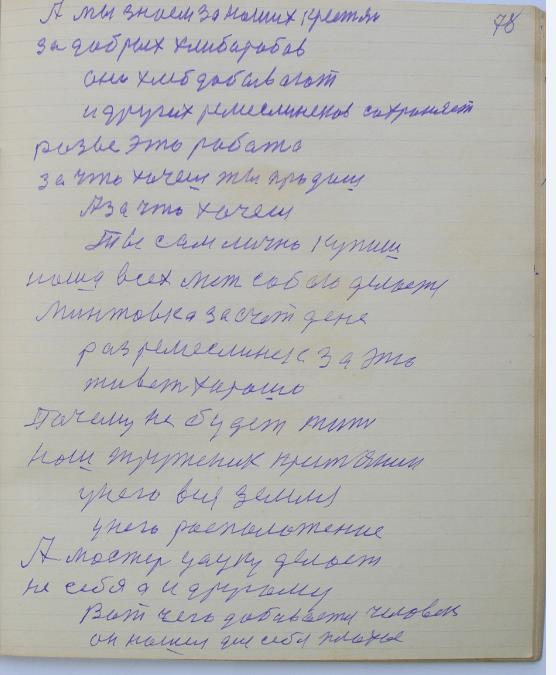 78
А мы знаем за наших крестян
за добрых хлибаробов
они хлеб добывают
и других ремеслинеков сохроняет
разве это работа
за что хочеш ты продаш
А за что хочеш
Ты сам лично купиш
наша всех мет собою делоет
Минтовка за счет дене
раз ремеслинек за это
живет харошо
Почему не будет жить
наш труженик крестянин
унего вся земля
унего расположение
А мостер уауку делоет
не себя а и другому
Вот чего добавается человек
он нашел для себя